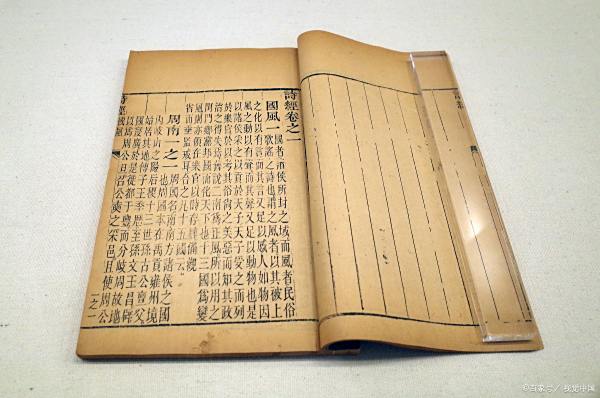 詩經卷之一
國風一 國者諸侯所封之域而風者民俗
歌謠之詩也謂之風者以其被上
之化以有言而其言又足以感人如物因
風之動以有聲而其聲又足以動物也是
以諸侯采之以貢於天子天子受之而列
於樂官於以考其俗尚之美惡而知其政
治之得失焉舊說二南為正風所以用之
閨門鄉黨邦國而化天下也十三國為變
風則亦領在樂官以時存肄備觀
省而垂監戒耳合之凡十五國云
周南一之一 周國名南南方諸侯之國
也周國本在禹貢雍州境
內岐山之陽后稷十三世孫古公亶父
始居其地傳子王季歷至孫文王昌辟
國寖廣於是徙都于豐而分岐周故地
以為周公旦召公奭之采邑且使周公
詩經 國風 一之一
©百家号/视觉中国